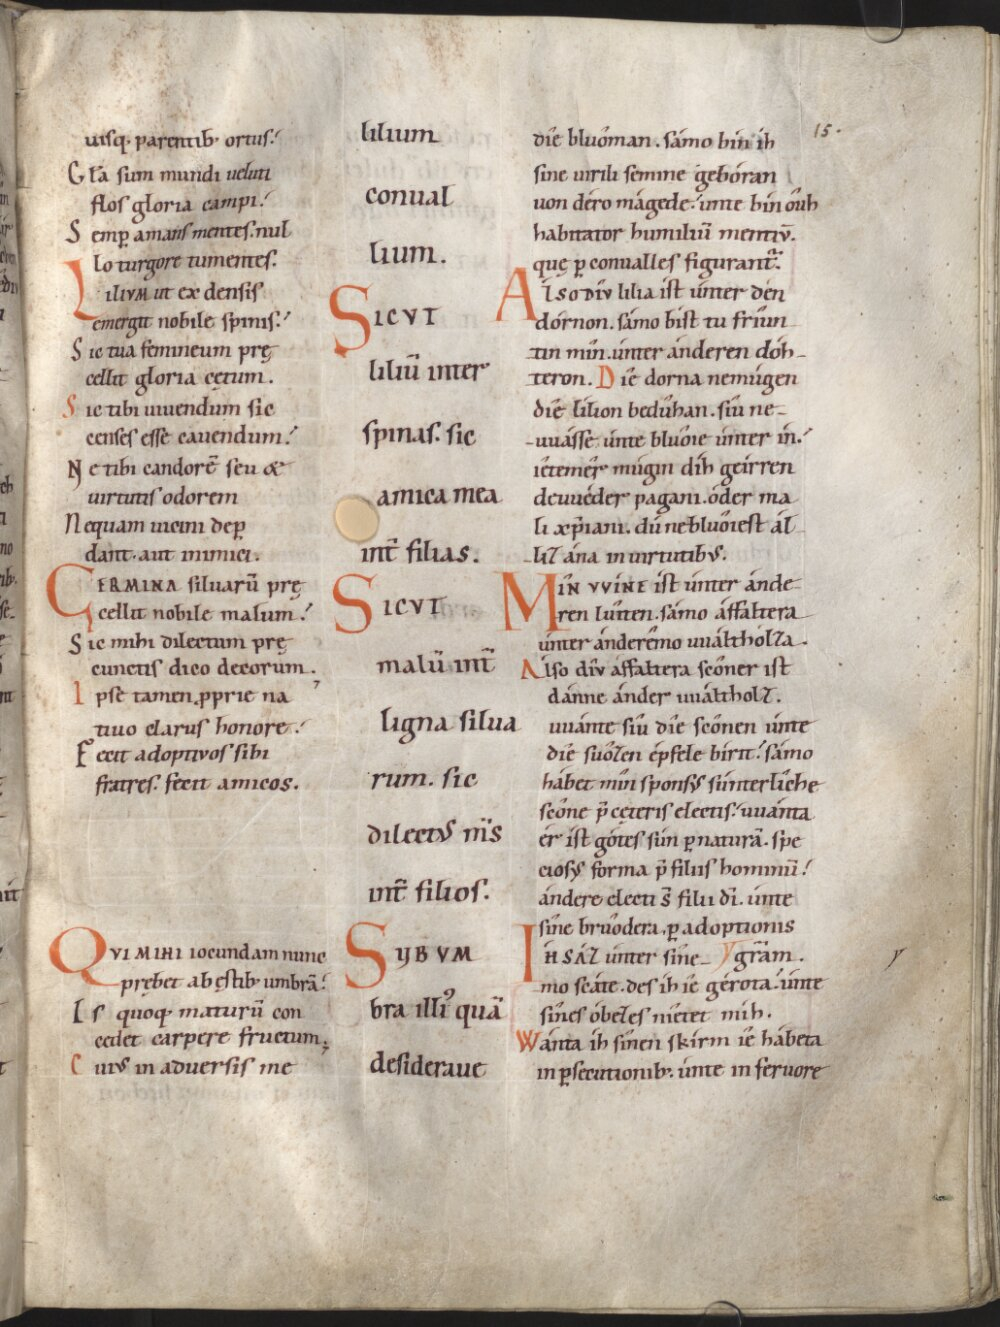 15.
uisq; parentib; ortus.
Gl̄a sum mundi ueluti
flos gloria campi.
Semp amans mentes. nul
lo turgore tumentes.
LILIVM ut ex densis
emergit nobile spinis.
Sic tua femineum pre̜
cellit gloria ce̜tum.
Sic tibi uiuendum sic
censes esse cauendum.
Ne tibi candorē seu &
uirtutis odorem
Nequam uicini dep̄
dant. aut inimici.
GERMINA siluarū pre̜
cellit nobile malum.
Sic mihi dilectum pre̜
cunctis dico decorum.
Ipse tamen ꝓprie na
tiuo clarus honore.
Fecit adoptiuos sibi
fratres. fecit amicos.
QVI MIHI iocundam nunc
pre̜bet ab e̜stib; umbrā.
Is quoq; maturū con
cedet carpere fructum.
Cuius in aduersis me
lilium
conual
lium.
SICVT
liliū inter
spinas. sic
amica mea
int̄ filias.
SICVT
malū int̄
ligna silua
rum. sic
dilectus m̄s
int̄ filios.
SVB VM
bra illi᾽ quā
desideraue
dîe blûoman. sámo bin ih
sine uirili semine gebóran
uon déro mágede. unte bin óuh
habitator humiliū mentiū.
que̜ ꝑ conualles figurant̄.
ALSO DIV lilia ist únter den
dórnon. sámo bist tu fríun
tin mîn. únter ánderen dóh-
teron. Dîe dorna nemúgen
dîe lílion bedûhan. síu ne-
uuásse únte blûoie únter in.
iêtemêr mugin dih geírren
deuuéder pagani. óder ma
li xp̄iani. dû neblûoiest ál-
lîz ána in uirtutibus.
MÎN VVINE ist únter ánde-
ren lûiten. sámo áffaltera
únter ánderêmo uuáltholza.
Álso dív áffaltera scôner ist
dánne ánder uuáltholz.
uuánte síu dîe scônen únte
dîe suôzen épfele birit. sámo
hábet mîn sponsus súnterlîche
scône p̄ ce̜teris electis. uuánta
ér ist gótes sún ꝑ naturā. spe
ciosus forma p̄ filiis hominū.
ándere electi s̄ filii dī. únte
sîne brûodera. ꝑ adoptionis
gr̄am.
IH SÁZ únter sîne-
mo scáte. des ih îe gérota. únte
sînes óbezes nîetet mih.
Wánta ih sînen skírm îe hábeta
in ꝑsecutionib; únte in feruore
y